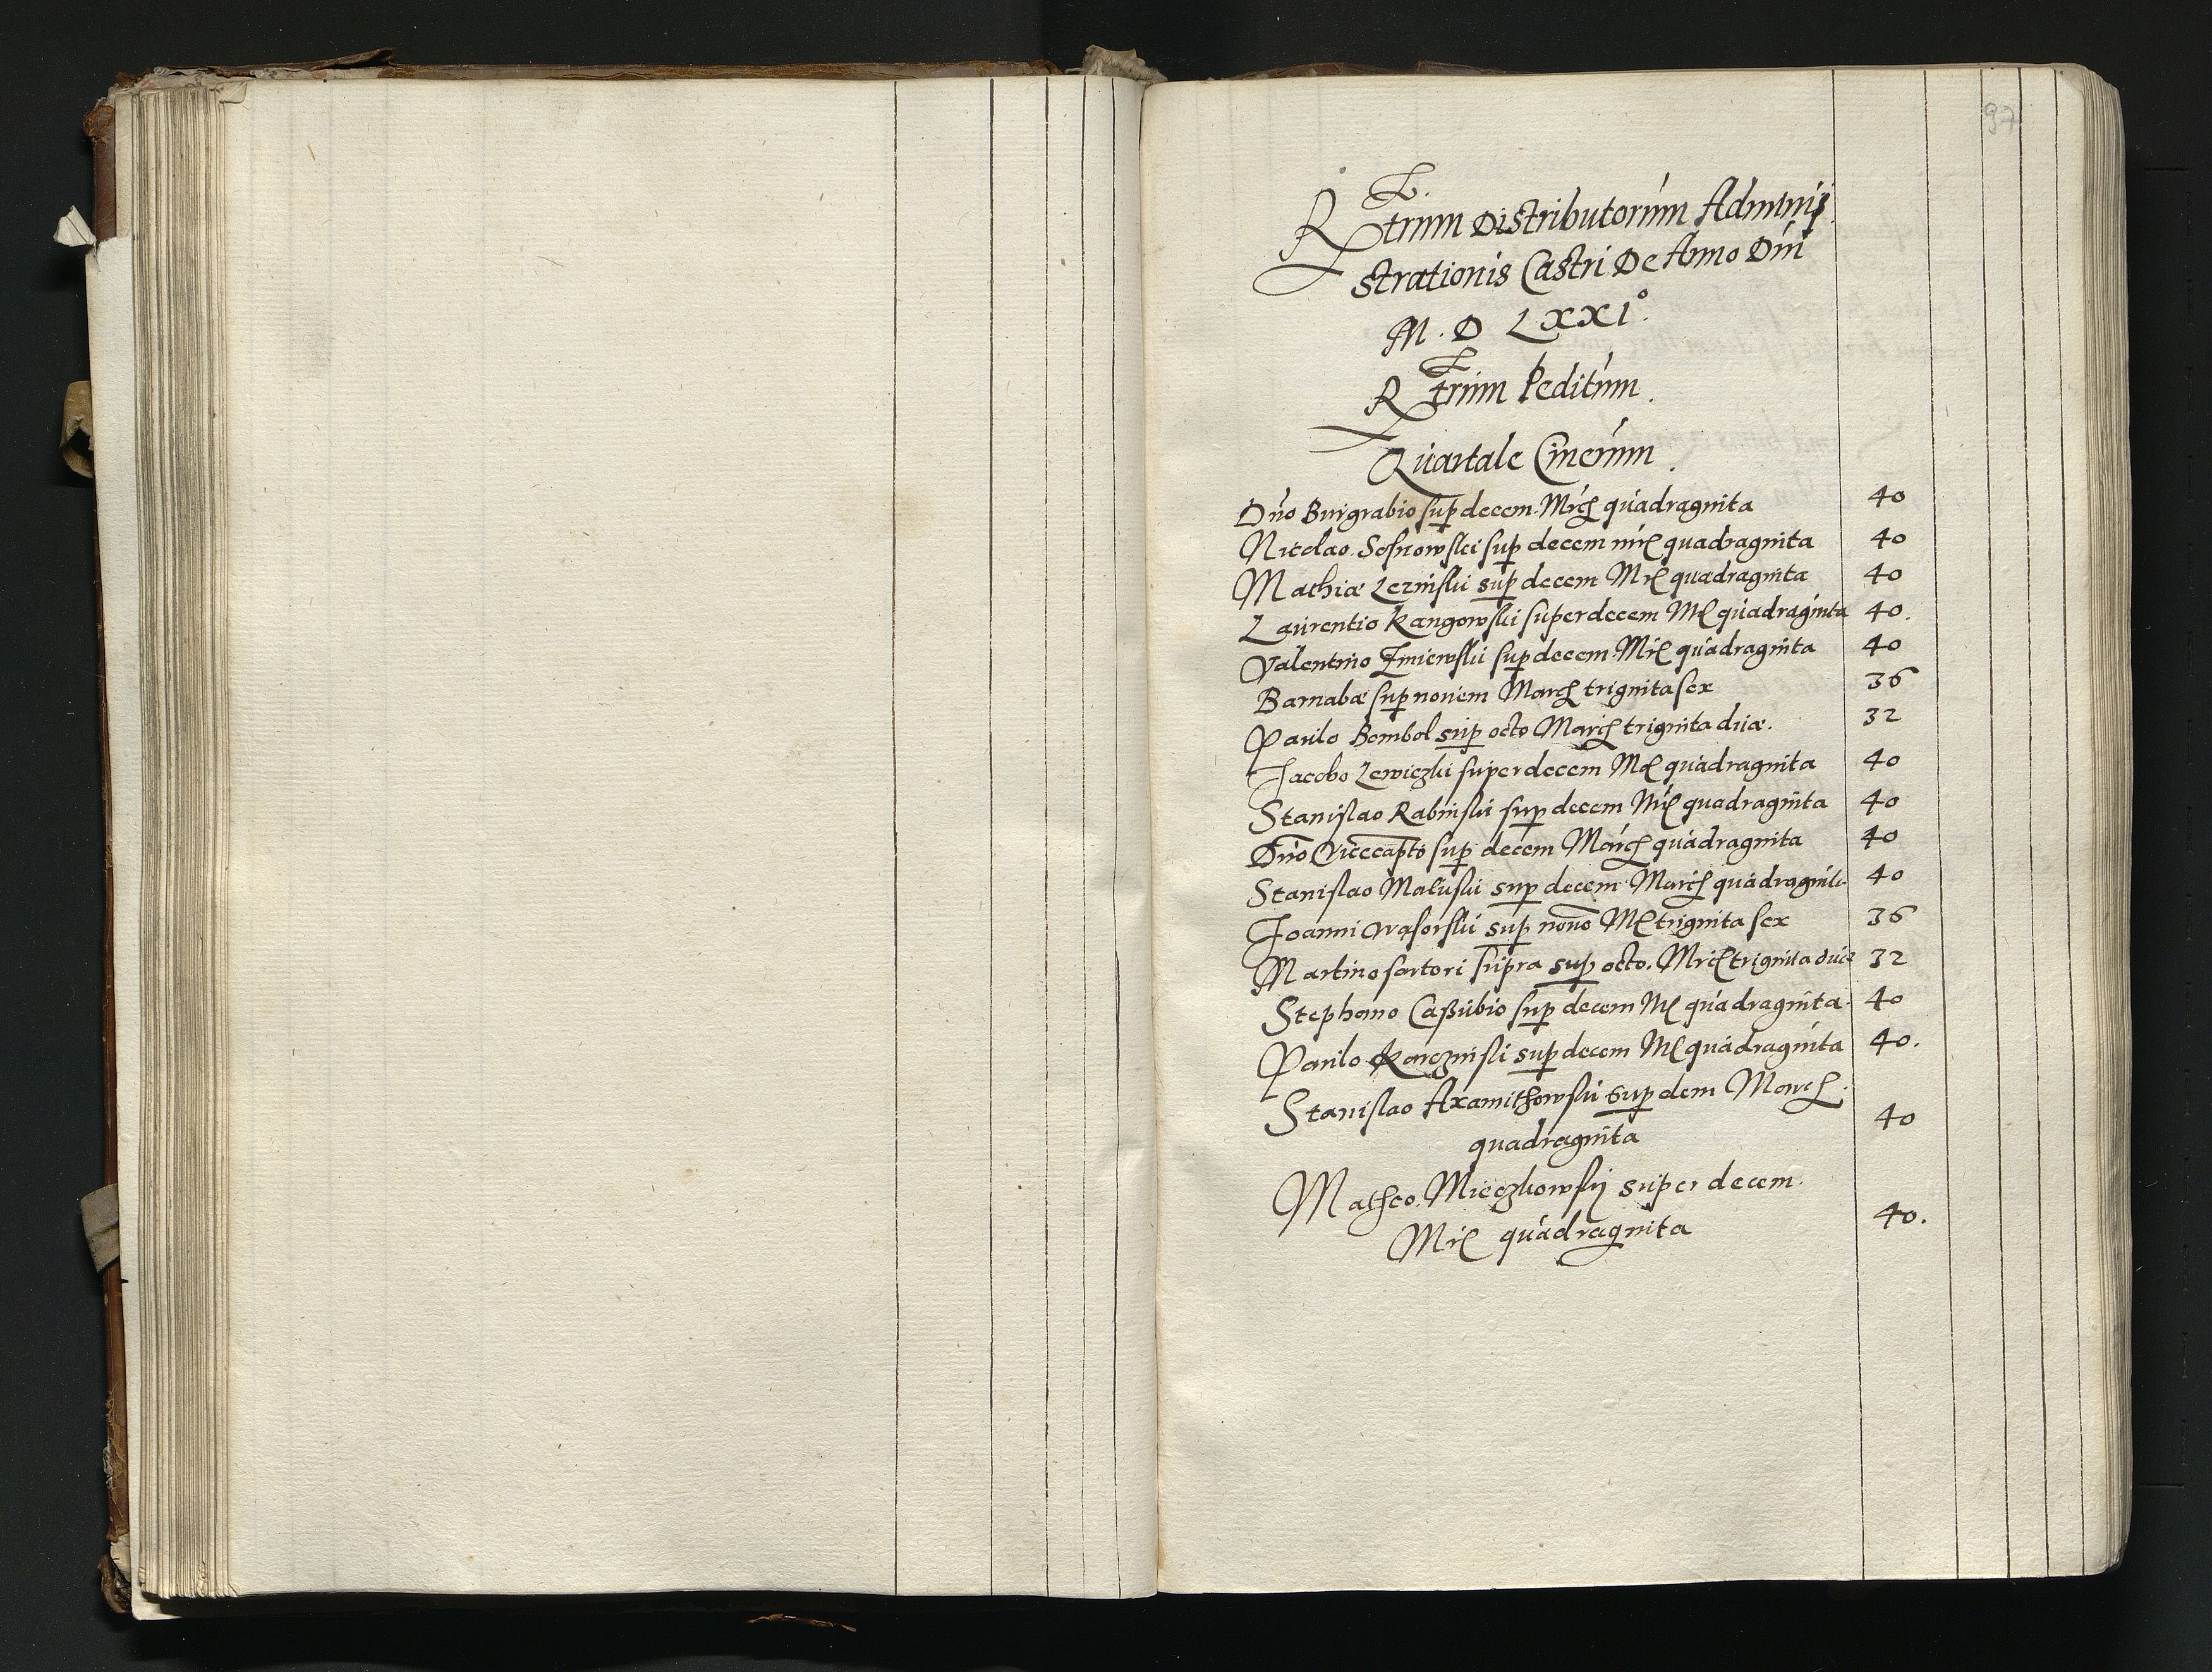 97
Rtrum Distributorum Adminis
strationis Castri De Anno Dni
M. D LXXI°.
Rtrum Peditum.
Quartale Cinerum.
Dno Burgrabio sup decem Mrc quadraginta 40
Nicolao Sosnowski sup decem mrc quadraginta 40
Mathiæ Lezinski sup decem Mrc quadraginta 40
Laurentio Kangowski super decem Mc quadraginta 40.
Valentino Zmiewski sup decem Mrc quadraginta 40
Barnabæ sup novem Marc triginta sex 36
Paulo Bombol sup octo Marc triginta duæ. 32
Jacobo Lewiczki super decem Mc quadraginta 40
Stanislao Rabinski sup decem Mrc quadraginta 40
Dno Vicecapto sup decem Marc quadraginta 40
Stanislao Maluski sup decem Marc quadraginta 40
Joanni Wasorski sup novo Mc triginta sex 36
Martino sartori supra sup octo. Mrc triginta duæ 32
Stephano Caßubio sup decem Mc quadraginta. 40
Paulo Karczinski sup decem Mc quadraginta 40.
Stanislao Axamithowski sup dem Marc.
quadraginta 40
Matheo Mieczkowskij super decem.
Mrc quadraginta 40.